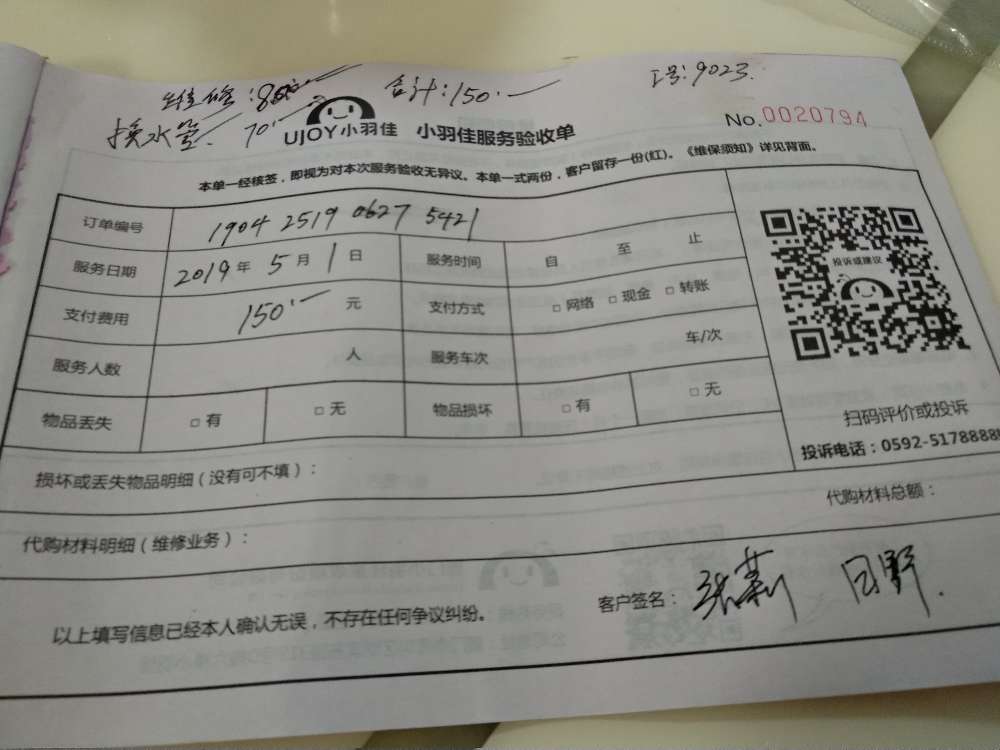 维修:80.- 合计:150.- 工号:9023.
换水 70.-
UJOY小羽佳 小羽佳服务验收单 No.0020794
本单一经核签，即视为对本次服务验收无异议。本单一式两份，客户留存一份(红)。《维保须知》详见背面。
订单编号 1904 2519 0627 5421
服务日期 2019年 5月 1日 服务时间 自 至 止
支付费用 150.- 元 支付方式 □网络 □现金 □转账
服务人数 人 服务车次 车/次
物品丢失 □有 □无 物品损坏 □有 □无
投诉或建议
扫码评价或投诉
投诉电话：0592-5178888
损坏或丢失物品明细（没有可不填）：
代购材料总额：
代购材料明细（维修业务）：
以上填写信息已经本人确认无误，不存在任何争议纠纷。
客户签名：